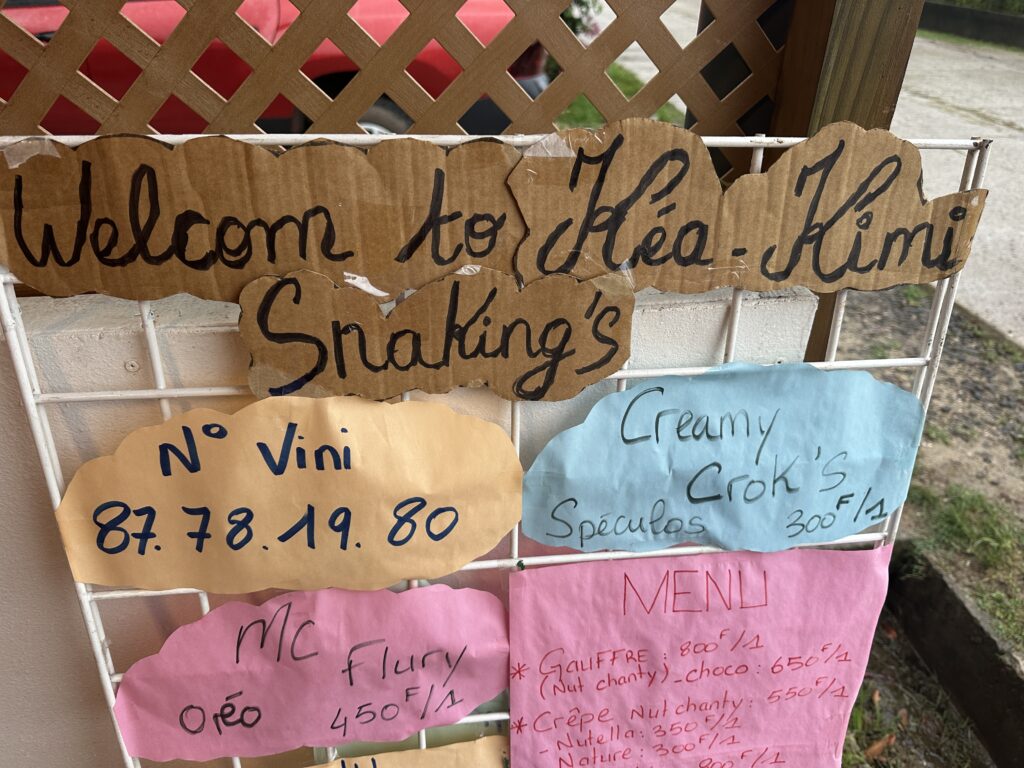 Welcom to Kéa-Kimi
Snaking's
N° Vini
87.78.19.80
Creamy
Crok's
Spéculos 300F/1
Mc
Flury
Oréo 450F/1
MENU
* GAUFFRE : 800F/1
(Nut chanty)_choco : 650F/1
* Crêpe Nutchanty : 550F/1
- Nutella : 350F/1
Nature : 300F/1
800F/1